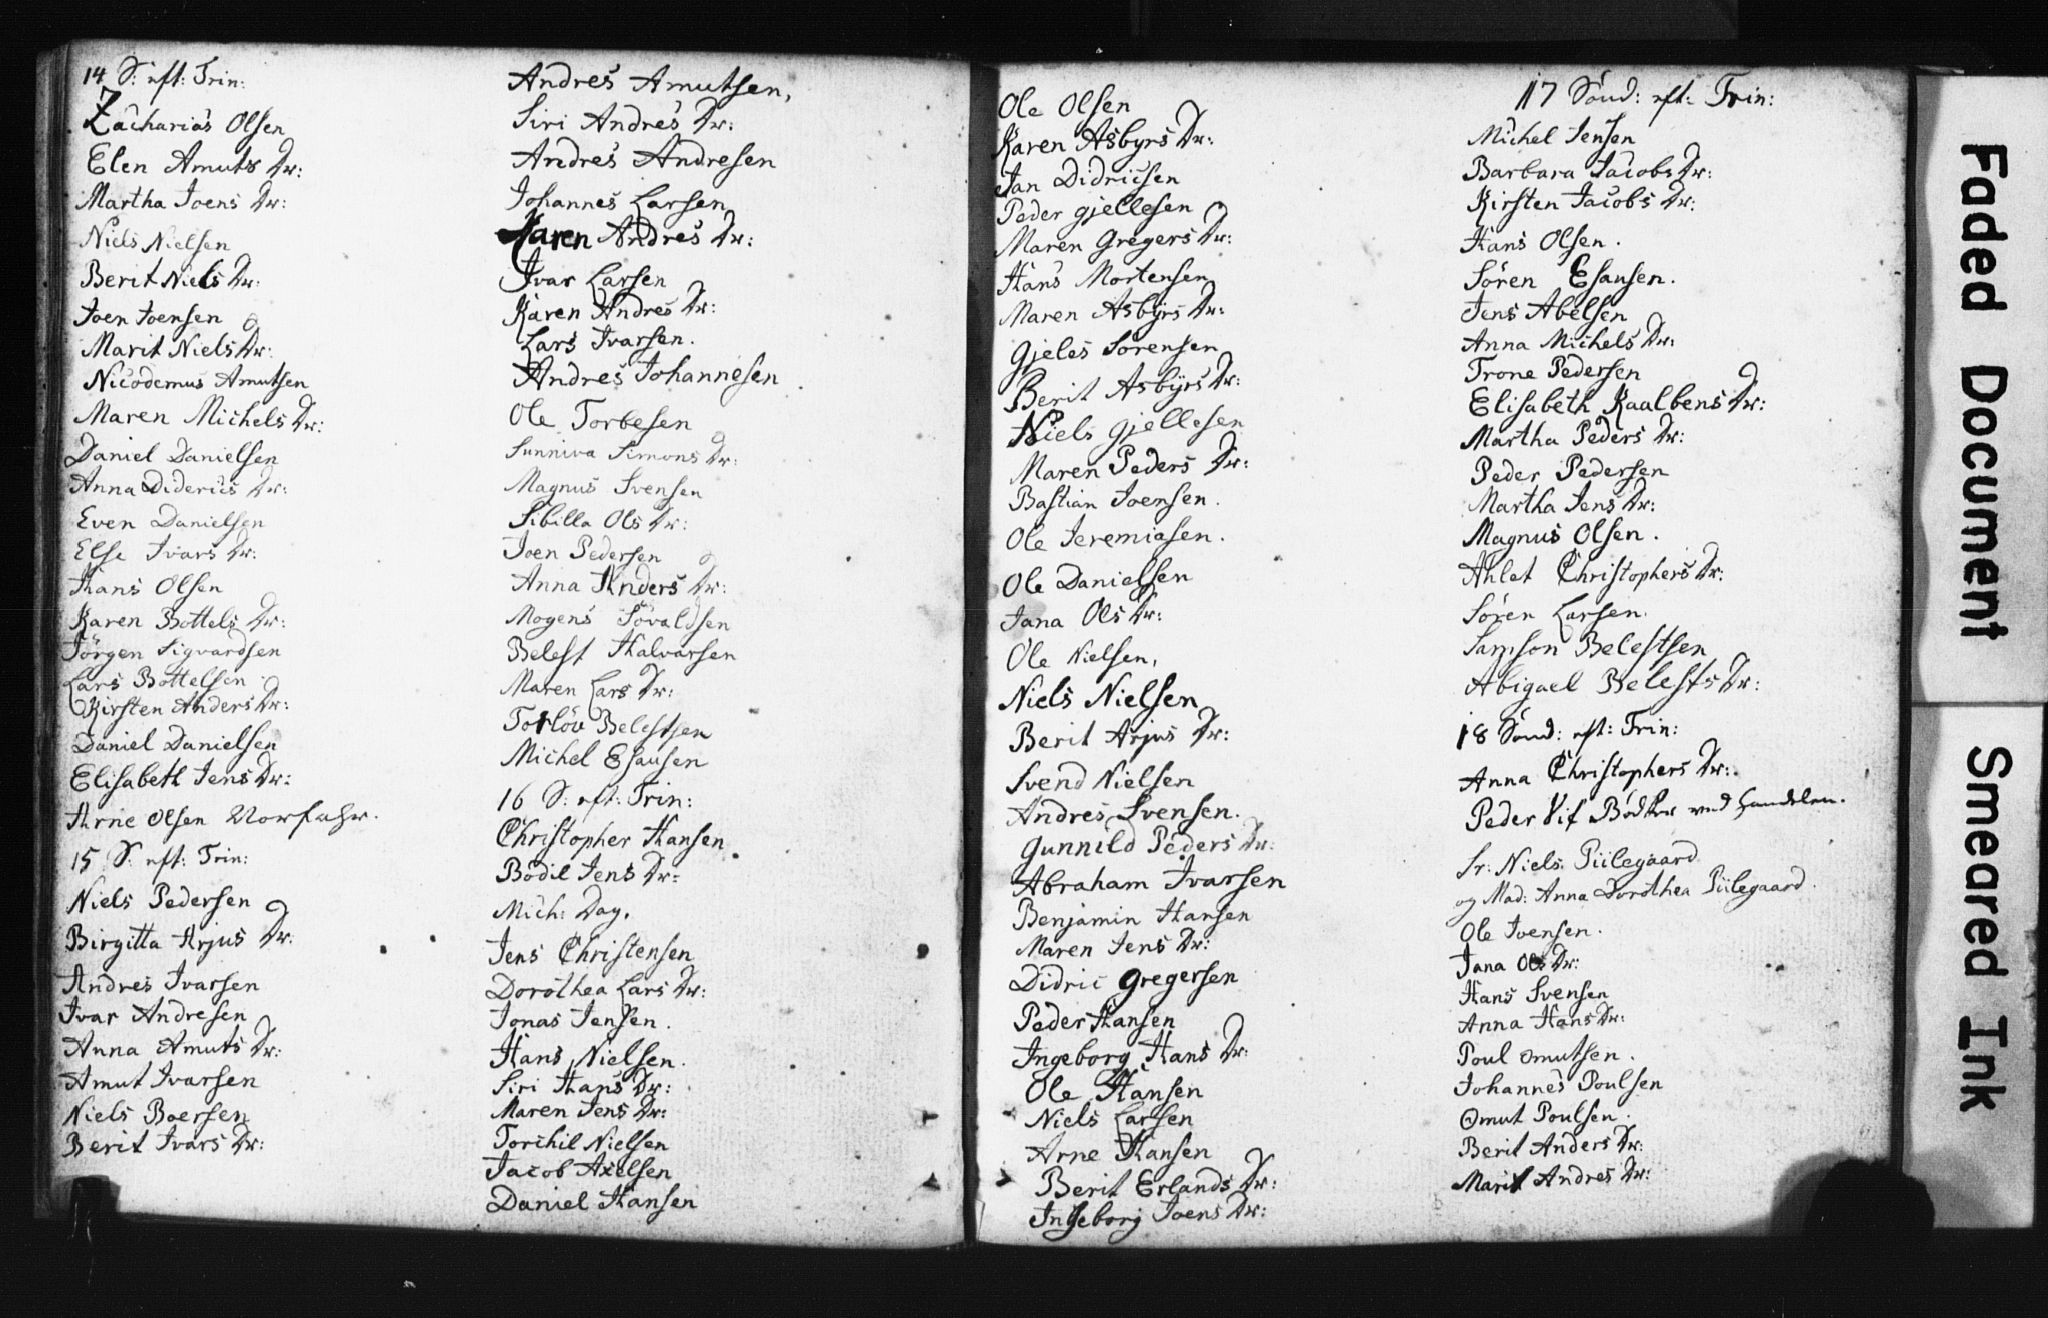 14 S: eft: Trin:
Zacharias Olsen
Elen Amuts Dr:
Martha Joens Dr:
Niels Nielsen
Berit Niels Dr:
Joen Joensen
Marit Niels Dr:
Nicodemus Amutsen
Maren Michels Dr:
Daniel Danielsen
Anna Diderics Dr:
Even Danielsen
Else Ivars Dr:
Hans Olsen
Karen Bottels Dr:
Jörgen Sigvardsen
Lars Bottelsen
Kirsten Anders Dr:
Daniel Danielsen
Elisabeth Jens Dr:
Arne Olsen Norfahr.
15 S: eft: Trin:
Niels Pedersen
Birgitta Arjus Dr:
Andres Ivarsen
Ivar Andresen
Anna Amuts Dr:
Amut Ivarsen
Niels Boersen
Berit Ivars Dr:
Andres Amutsen,
Siri Andres Dr:
Andres Andresen
Johannes Larsen
Karen Andres Dr:
Ivar Larsen
Karen Andres Dr:
Lars Ivarsen.
Andres Johannesen
Ole Torbesen
Sunniva Simons Dr:
Magnus Svensen
Sibilla Ols Dr:
Joen Pedersen
Anna Anders Dr:
Mogens Sövaldsen
Belest Halvarsen
Maren Lars Dr:
Torlöv Belestsen
Michel Esausen
16 S: eft: Trin:
Christopher Hansen
Bodil Jens Dr:
Mich: Dag.
Jens Christensen
Dorothea Lars Dr:
Jonas Jensen.
Hans Nielsen.
Siri Hans Dr:
Maren Jens Dr:
Torchil Nielsen
Jacob Axelsen
Daniel Hansen
Ole Olsen
Karen Asbyrs Dr:
Jan Didricsen
Peder Gjellesen
Maren Gregers Dr:
Hans Mortensen
Maren Asbyrs Dr:
Gjeles Sörensen
Berit Asbyrs Dr:
Niels Gjellesen
Maren Peders Dr:
Bastian Joensen.
Ole Jeremiasen.
Ole Danielsen
Jana Ols Dr:
Ole Nielsen,
Niels Nielsen
Berit Arjus Dr:
Svend Nielsen
Andres Svensen.
Gunnild Peders Dr:
Abraham Ivarsen
Benjamin Hansen
Maren Jens Dr:
Didric Gregersen
Peder Hansen
Ingeborg Hans Dr:
Ole Hansen
Niels Larsen
Arne Hansen
Berit Erlands Dr:
Ingeborg Joens Dr:
17 Sönd: eft: Trin:
Michel Jensen
Barbara Jacobs Dr:
Kirsten Jacobs Dr:
Hans Olsen.
Sören Esausen.
Jens Abelsen
Anna Michels Dr:
Trone Pedersen
Elisabeth Kaalbens Dr:
Martha Peders Dr:
Peder Pedersen
Martha Jens Dr:
Magnus Olsen.
Ahlet Christophers Dr:
Sören Larsen.
Samson Belestsen
Abigael Belests Dr:
18 Sönd: eft: Trin:
Anna Christophers Dr:
Peder Vif Bödker ved Handelen.
Sr: Niels Piilegaard
og Mad: Anna Dorothea Piilegaard.
Ole Ivensen.
Jana Ols Dr:
Hans Svensen
Anna Hans Dr:
Poul Omutsen.
Johannes Poulsen
Omut Poulsen.
Berit Anders Dr:
Marit Andres Dr:
Faded Document
Smeared Ink